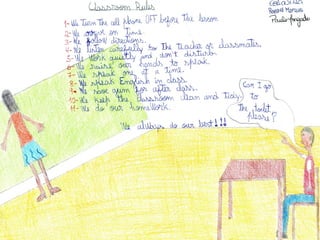 Classroom Rules
1- We turn the all phone OFF before the lesson.
2- We arrive on time.
3- We follow directions.
4- We listen carefully to the teacher or classmates.
5- We work quietly and don't disturb.
6- We raise our hands to speak.
7- We speak one at a time.
8- We speak English in class.
9- We save gum for after class.
10- We keep the classroom clean and tidy.
11- We do our homework.
We always do our best!!!
Can I go
to
the toilet
please?